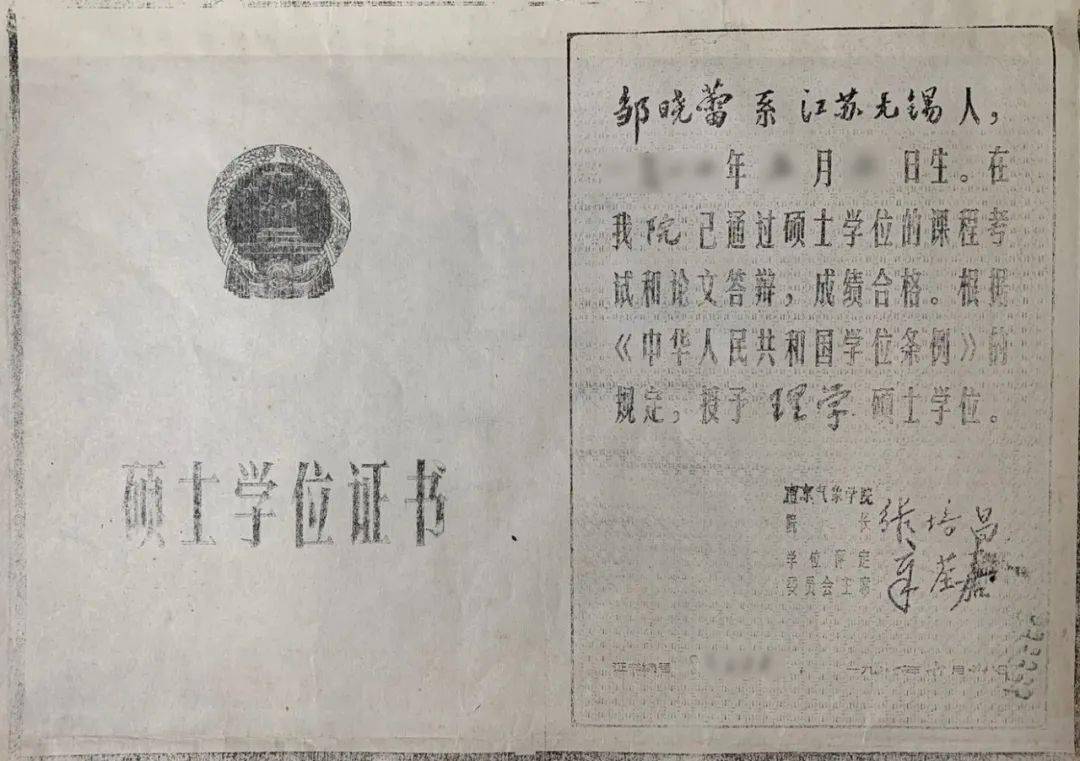 硕士学位证书
邹晓蕾 系 江苏无锡人，
年 月 日生。在
我院已通过硕士学位的课程考
试和论文答辩，成绩合格。根据
《中华人民共和国学位条例》的
规定，授予 理学 硕士学位。
南京气象学院
院长 张培昌
学位评定
委员会主席 章基嘉
证书编号